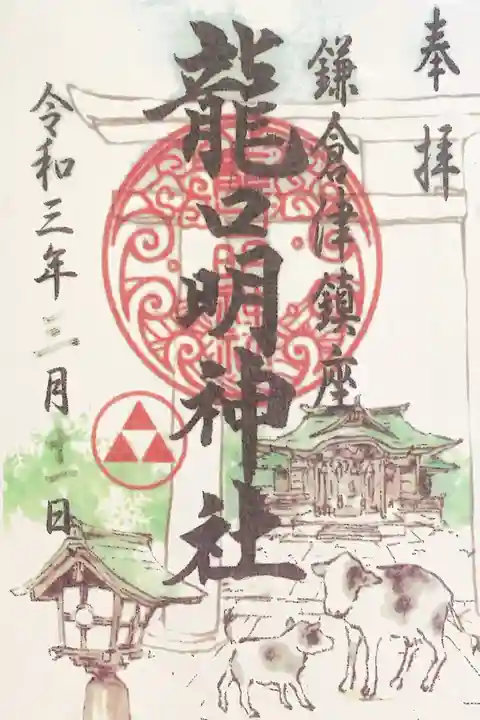 奉拝
鎌倉津鎮座
龍口明神社
令和三年三月十一日